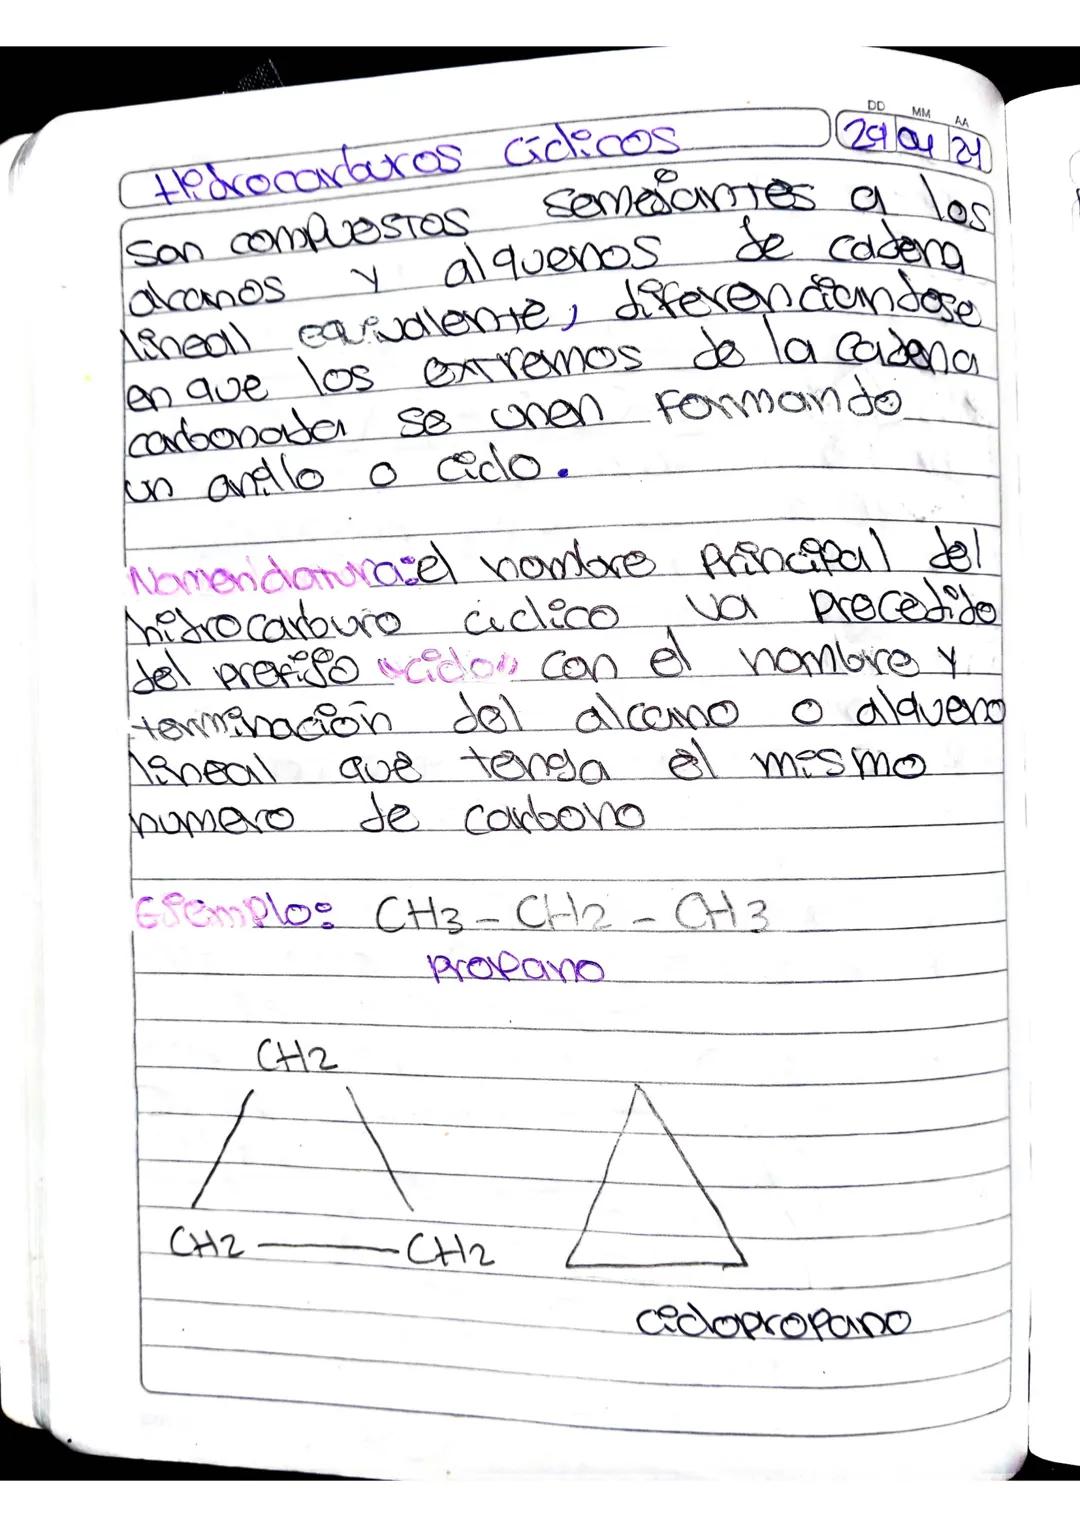 DD MM AA
29 04 21
Hidrocarburos ciclicos
Son compuestos semejantes a los
alcanos y alquenos de cadena
lineal equivalente, diferenciandose
en que los extremos de la cadena
carbonada se unen formando
un anillo o ciclo.
Nomenclatura: el nombre principal del
hidrocarburo ciclico va precedido
del prefijo "ciclo", con el nombre y
terminación del alcano o alqueno
lineal que tenga el mismo
numero de carbono
Ejemplo: CH3 - CH2 - CH3
propano
CH2
CH2 — CH2
ciclopropano